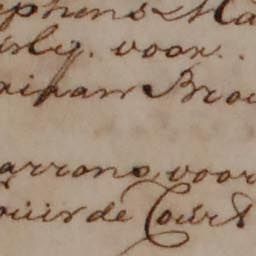 ephens Ma
irly. voor.
rinam Brou
arrons, voor
ouis de Court